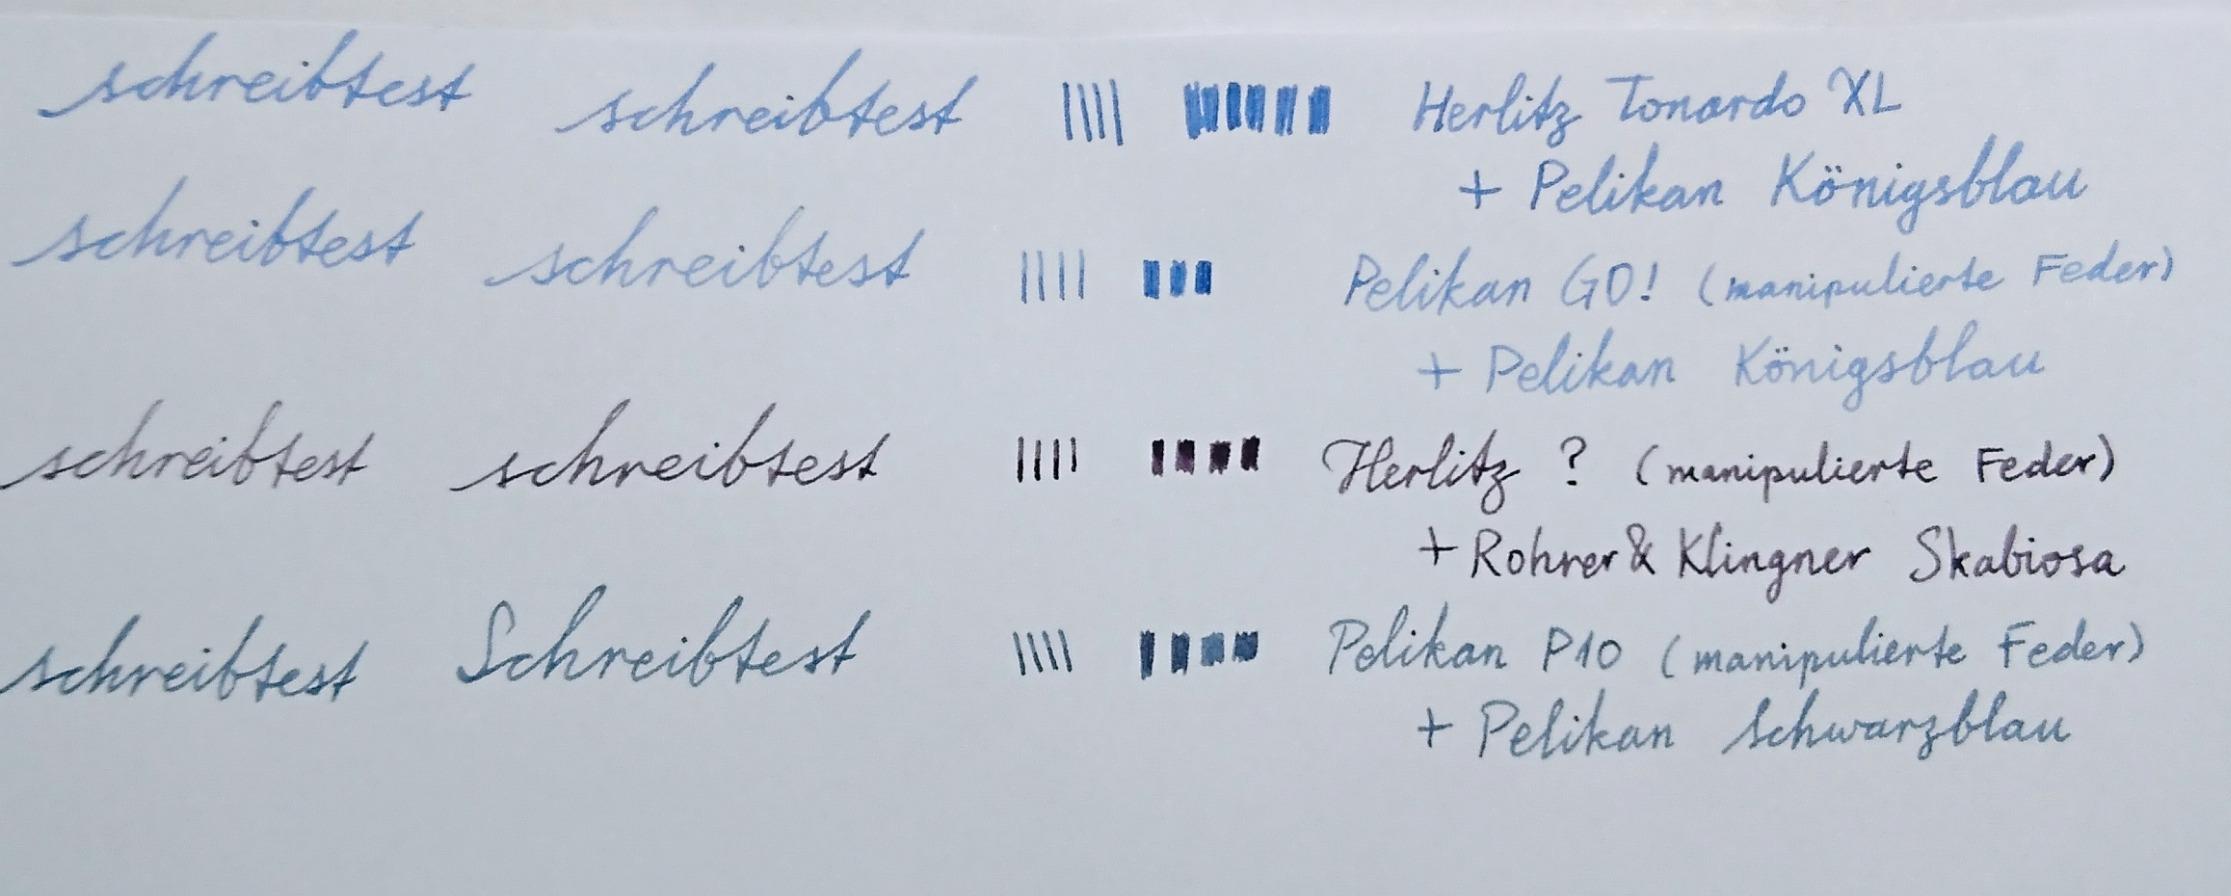 schreibtest schreibtest Herlitz Tonardo XL
+ Pelikan Königsblau
schreibtest schreibtest Pelikan GO! (manipulierte Feder)
+ Pelikan Königsblau
schreibtest schreibtest Herlitz ? (manipulierte Feder)
+ Rohrer & Klingner Skabiosa
schreibtest Schreibtest Pelikan P10 (manipulierte Feder)
+ Pelikan Schwarzblau